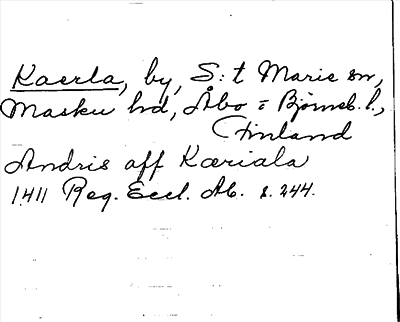 Kaerla, by, S:t Marie sn,
Masku hd, Åbo = Björneb. l.,
Finland
Andris aff Kæriala
1411 Reg. Eccl. Ab. s. 244.